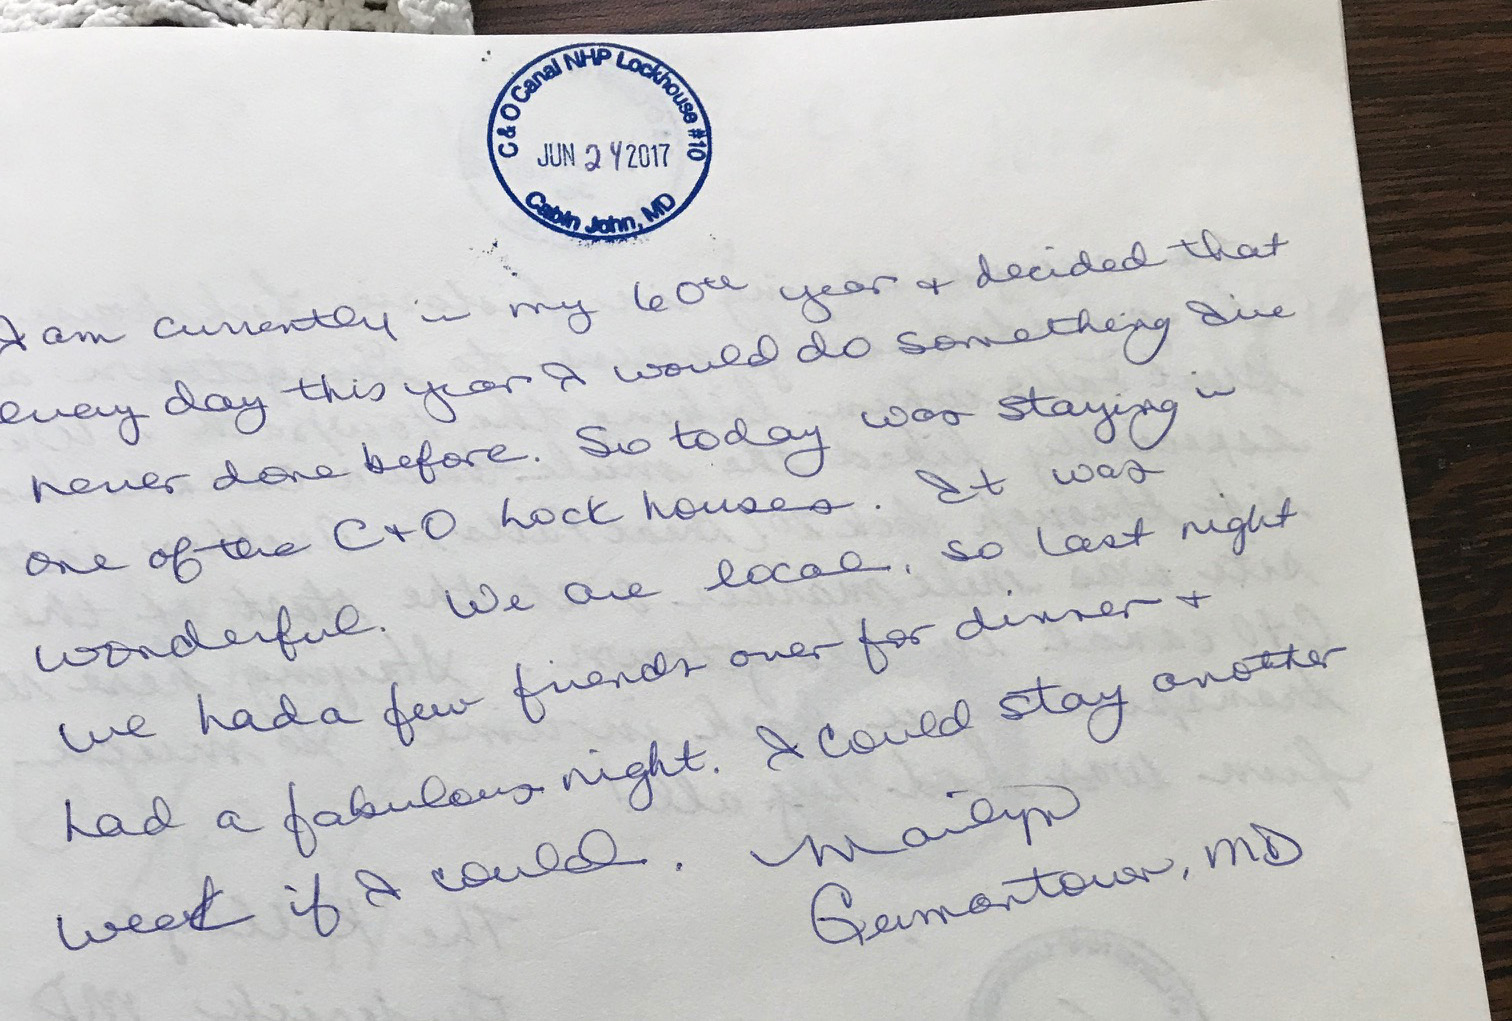 C & O Canal NHP Lockhouse #10
JUN 24 2017
Cabin John, MD
I am currently in my 60th year + decided that
every day this year I would do something I've
never done before. So today was staying in
one of the C+O Lock houses. It was
wonderful. We are local, so last night
we had a few friends over for dinner +
had a fabulous night. I could stay another
week if I could. Mailyn
Germantown, MD